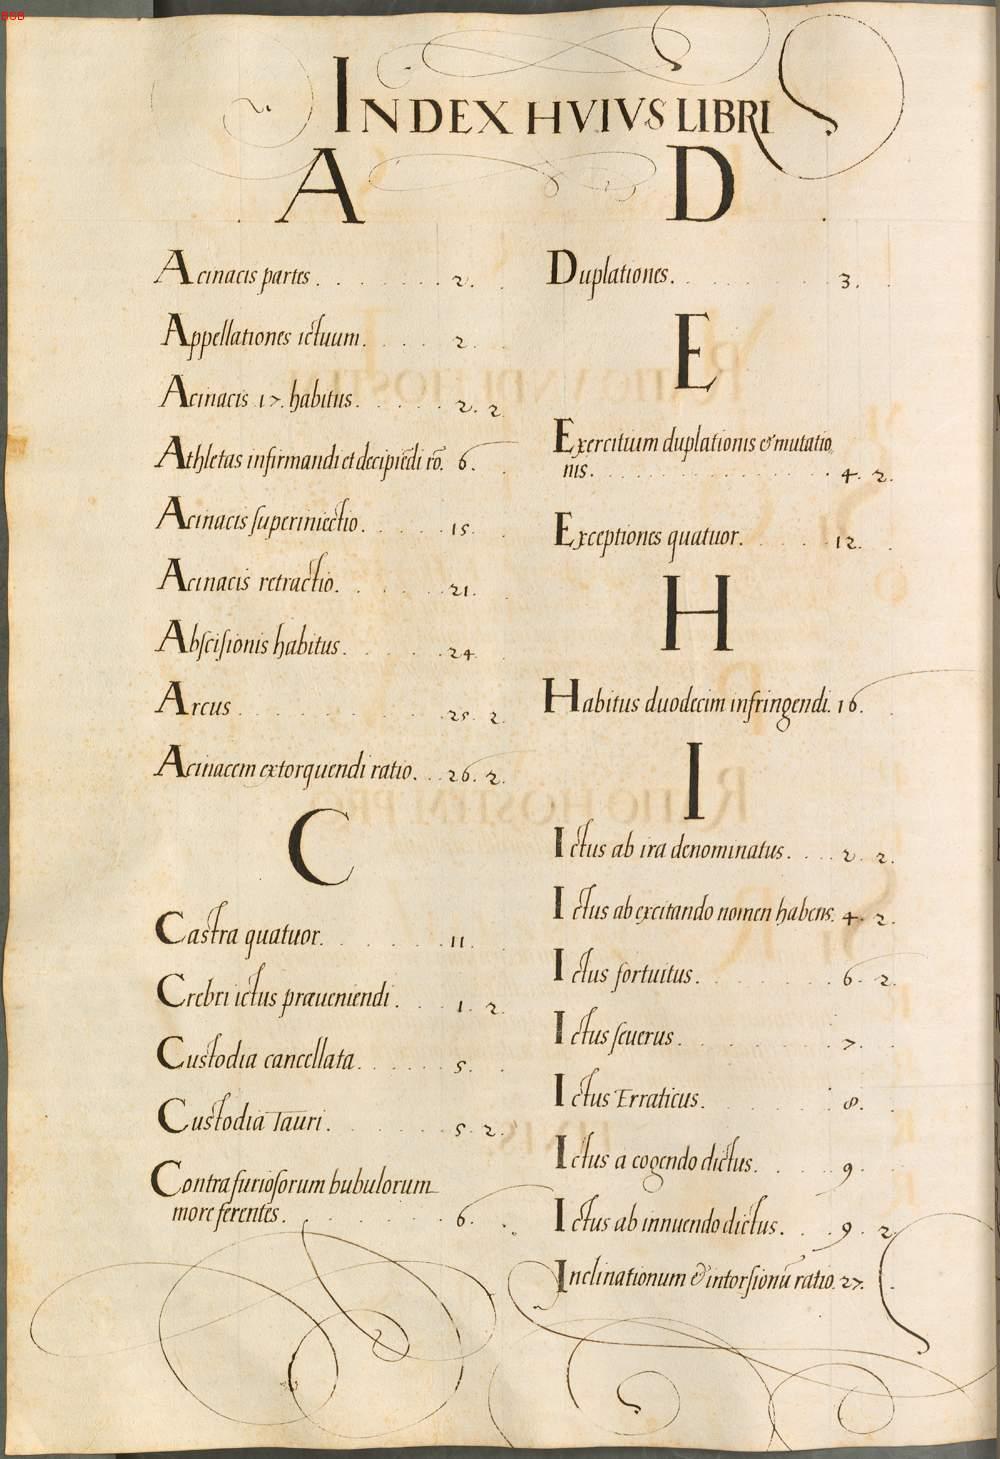 BSB
INDEX HVIVS LIBRI
A
Acinacis partes . . . . . . . 2.
Appellationes ictuum . . . . . 2
Acinacis 17. habitus . . . . . . 2. 2
Athletas infirmandi et decipiēdi rō. 6.
Acinacis superiniectio . . . . . 15.
Acinacis retractio . . . . . . 21.
Abscisionis habitus . . . . . . 24
Arcus . . . . . . . . . 25. 2.
Acinacem extorquendi ratio . . . 26. 2.
C
Castra quatuor . . . . . . . 11.
Crebri ictus praueniendi . . . . 1. 2.
Custodia cancellata . . . . . . 5.
Custodia Tauri . . . . . . . 5. 2.
Contra furiosorum bubulorum
more ferentes . . . . . . . . 6.
D
Duplationes . . . . . . . . 3.
E
Exercitium duplationis & mutatio
nis . . . . . . . . . . . 4. 2.
Exceptiones quatuor . . . . . 12.
H
Habitus duodecim infringendi. 16.
I
Ictus ab ira denominatus . . . . 2. 2.
Ictus ab excitando nomen habens. 4. 2.
Ictus fortuitus . . . . . . . 6. 2.
Ictus seuerus . . . . . . . . 7.
Ictus Erraticus . . . . . . . 8.
Ictus a cogendo dictus . . . . . 9.
Ictus ab innuendo dictus . . . . 9. 2.
Inclinationum & intorsionū ratio. 27.